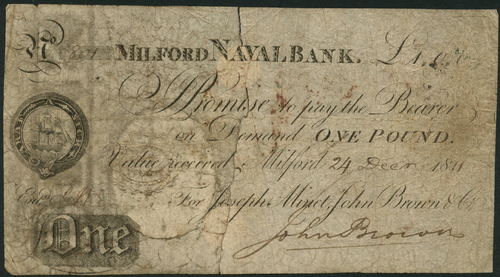 No MILFORD NAVAL BANK. £1,0,0
I Promise to pay the Bearer
on Demand ONE POUND.
Value received Milford 24 Decr 1811
For Joseph Minet, John Brown & Co
One
John Brown